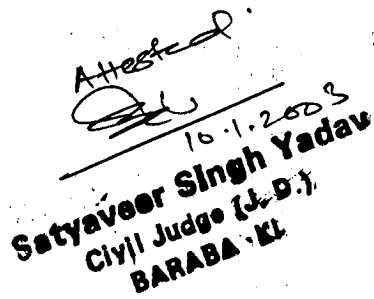 Attested
10.1.2003
Satyaveer Singh Yadav
Civil Judge (J. D.),
BARABA KI